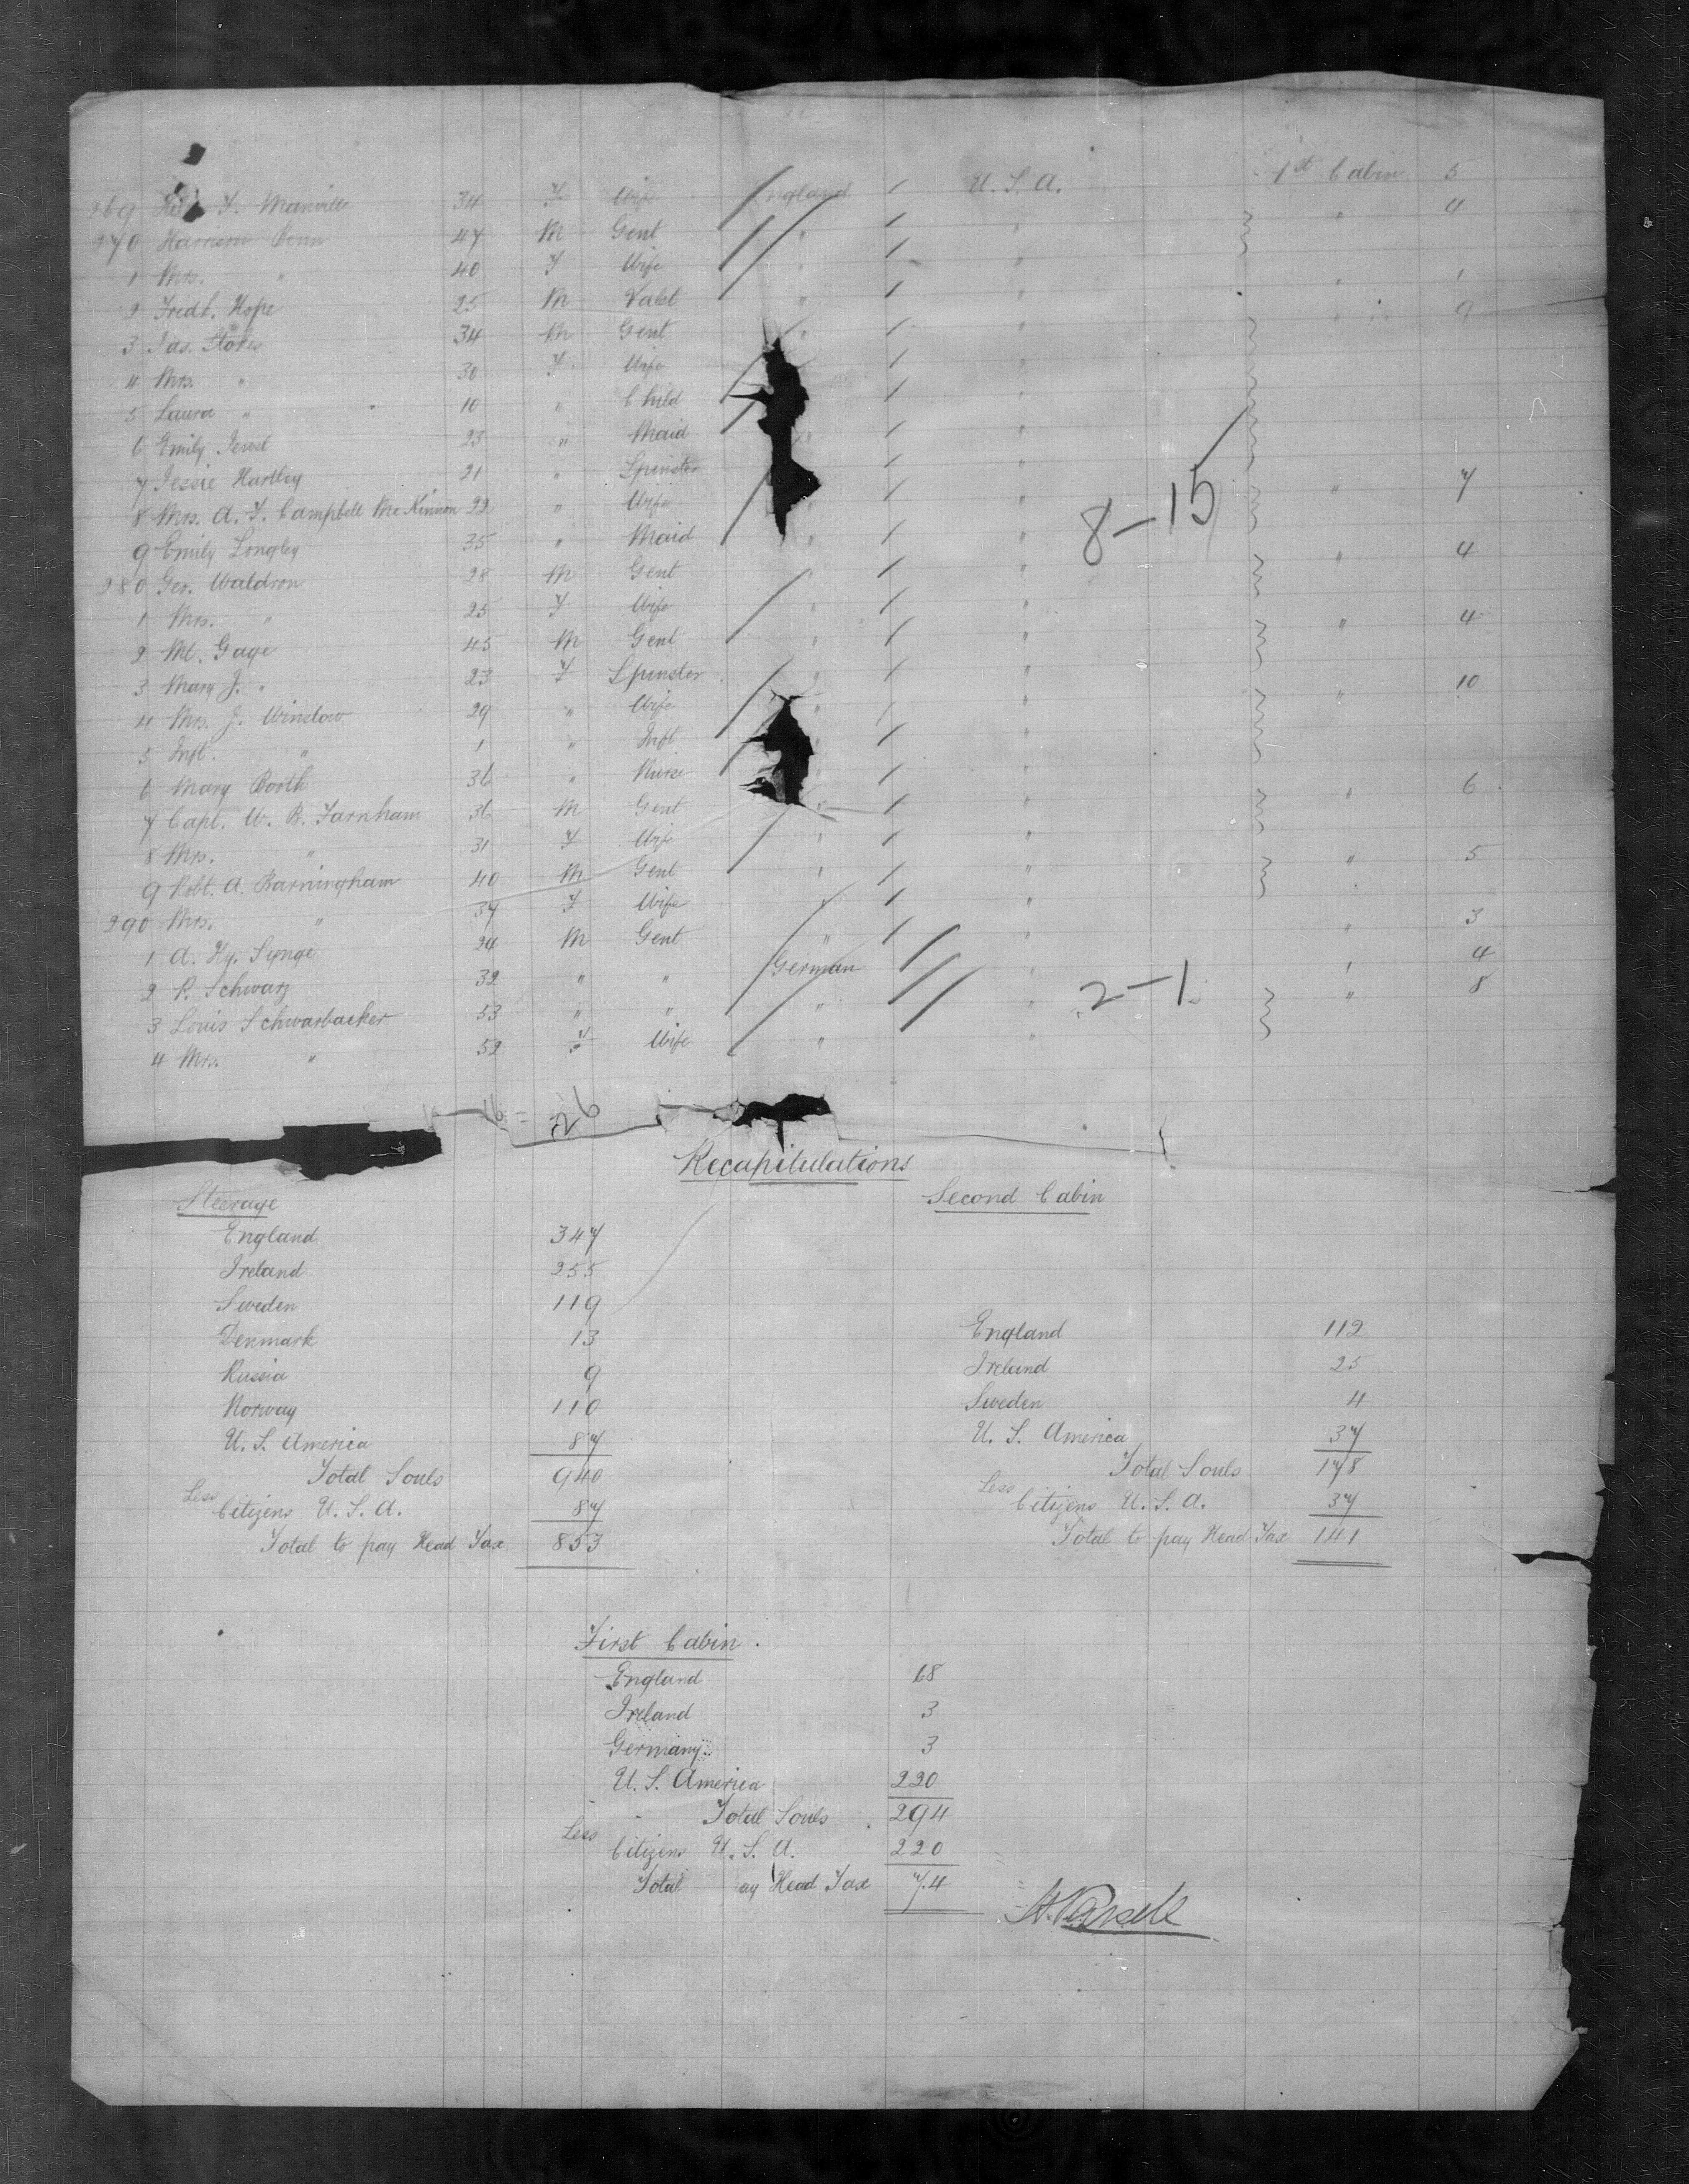 269 F. Manville 34 F Wife England / U. S. A. 1st Cabin 5
270 Harrison Penn 47 M Gent " / " " 4
1 Mrs. " 40 F Wife " / "
2 Fredk. Hope 25 M Valet " / " " 1
3 Jas. Stokes 34 M Gent " / " " 9
4 Mrs. " 30 F Wife / "
5 Laura " 10 " Child / "
6 Emily 23 " Maid " / "
7 Jessie Hartley 21 " Spinster / "
8 Mrs. A. F. Campbell McKinnon 22 " Wife / " " 7
9 Emily Longley 35 " Maid " / "
8-15
280 Geo. Waldron 28 M Gent " / " " 4
1 Mrs. " 25 F Wife " / "
2 Ml. Gage 45 M Gent " / " " 4
3 Mary J. " 23 F Spinster " / "
4 Mrs. J. Winslow 29 " Wife " / " " 10
5 Inft. " 1 " Inft " / "
6 Mary Booth 36 " Nurse / "
7 Capt. W. R. Farnham 36 M Gent " / " " 6
8 Mrs. " 31 F Wife " / "
9 Robt. A. Barningham 40 M Gent " / " " 5
290 Mrs. " 37 F Wife " / "
1 A. Hy. Synge 24 M Gent " / " " 3
2 R. Schwarz 32 " " German / " " 4
3 Louis Schwarbacker 53 " " " / " " 8
2-1
4 Mrs. " 52 F Wife " / "
16 = 26
Recapitulations
Steerage
Second Cabin
England 347
Ireland 255
Sweden 119
Denmark 13
Russia 9
Norway 110
U. S. America 87
Total Souls 940
Less
Citizens U. S. A. 87
Total to pay Head Tax 853
England 112
Ireland 25
Sweden 4
U. S. America 37
Total Souls 178
Less
Citizens U. S. A. 37
Total to pay Head Tax 141
First Cabin.
England 68
Ireland 3
Germany 3
U. S. America 220
Total Souls 294
Less
Citizens U. S. A. 220
Total ay Head Tax 74